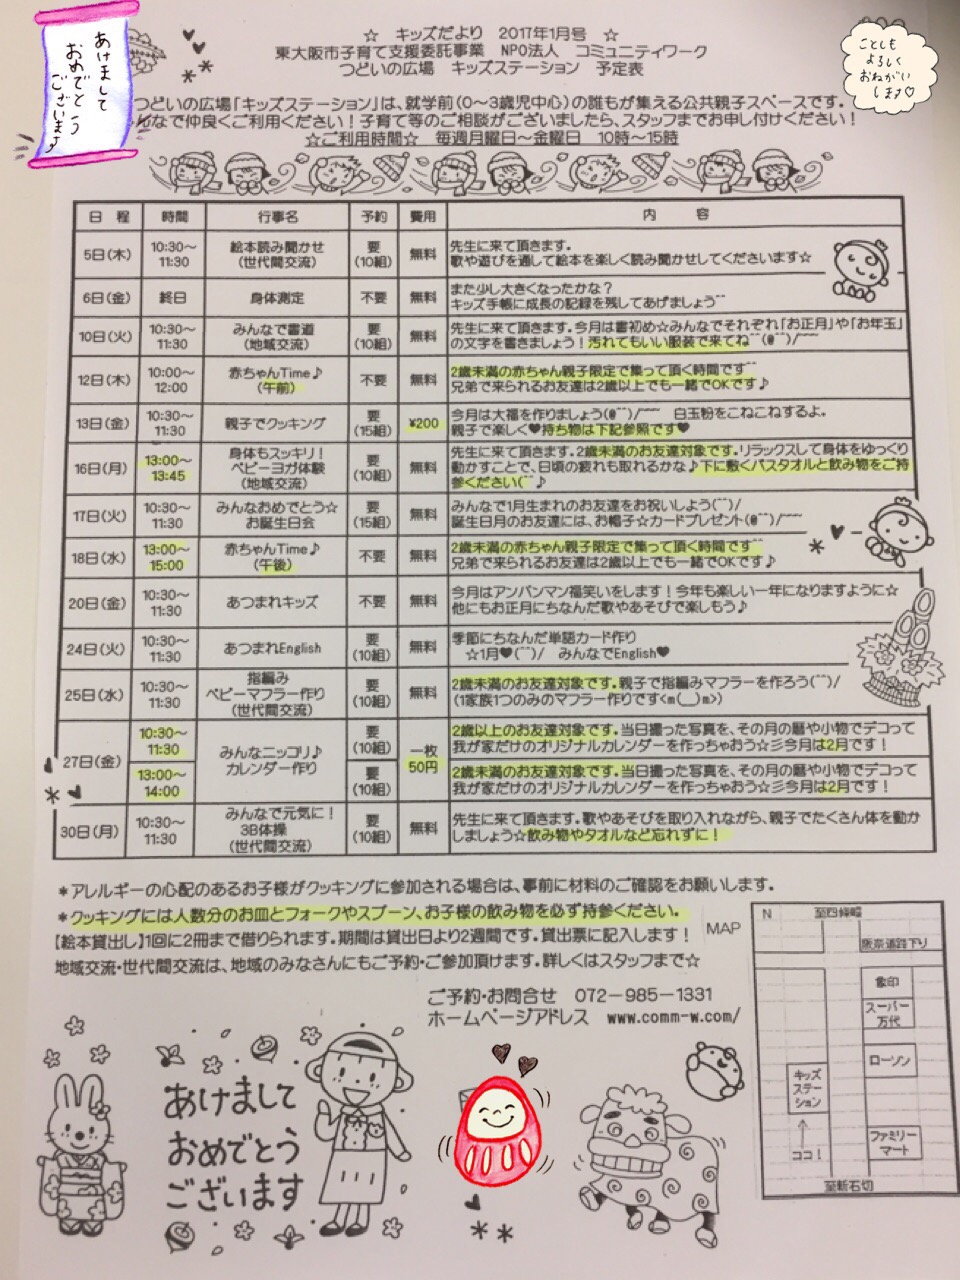 あけまして
おめでとう
ございます
ことしも
よろしく
おねがい
します♡
☆ キッズだより 2017年1月号 ☆
東大阪市子育て支援委託事業 NPO法人 コミュニティワーク
つどいの広場 キッズステーション 予定表
つどいの広場「キッズステーション」は、就学前(0〜3歳児中心)の誰もが集える公共親子スペースです。
んなで仲良くご利用ください!子育て等のご相談がございましたら、スタッフまでお申し付けください!
☆ご利用時間☆ 毎週月曜日〜金曜日 10時〜15時
日 程 時間 行事名 予約 費用 内 容
5日(木) 10:30〜11:30 絵本読み聞かせ(世代間交流) 要(10組) 無料 先生に来て頂きます。
歌や遊びを通して絵本を楽しく読み聞かせしてくださいます☆
6日(金) 終日 身体測定 不要 無料 また少し大きくなったかな?
キッズ手帳に成長の記録を残してあげましょう^^
10日(火) 10:30〜11:30 みんなで書道(地域交流) 要(10組) 無料 先生に来て頂きます。今月は書初め☆みんなでそれぞれ「お正月」や「お年玉」
の文字を書きましょう!汚れてもいい服装で来てね^^(@^^)/~~~
12日(木) 10:00〜12:00 赤ちゃんTime♪(午前) 不要 無料 2歳未満の赤ちゃん親子限定で集って頂く時間です^^
兄弟で来られるお友達は2歳以上でも一緒でOKです♪
13日(金) 10:30〜11:30 親子でクッキング 要(15組) ¥200 今月は大福を作りましょう(@^^)/~~~ 白玉粉をこねこねするよ。
親子で楽しく♥持ち物は下記参照です♥
16日(月) 13:00〜13:45 身体もスッキリ!ベビーヨガ体験(地域交流) 要(10組) 無料 先生に来て頂きます。2歳未満のお友達対象です。リラックスして身体をゆっくり
動かすことで、日頃の疲れも取れるかな♪下に敷くバスタオルと飲み物をご持
参ください(^^♪
17日(火) 10:30〜11:30 みんなおめでとう☆お誕生日会 要(15組) 無料 みんなで1月生まれのお友達をお祝いしよう(^^)/
誕生日月のお友達には、お帽子☆カードプレゼント(@^^)/~~~
18日(水) 13:00〜15:00 赤ちゃんTime♪(午後) 不要 無料 2歳未満の赤ちゃん親子限定で集って頂く時間です^^
兄弟で来られるお友達は2歳以上でも一緒でOKです♪
20日(金) 10:30〜11:30 あつまれキッズ 不要 無料 今月はアンパンマン福笑いをします!今年も楽しい一年になりますように☆
他にもお正月にちなんだ歌やあそびで楽しもう♪
24日(火) 10:30〜11:30 あつまれEnglish 要(10組) 無料 季節にちなんだ単語カード作り
☆1月♥(^^)/ みんなでEnglish♥
25日(水) 10:30〜11:30 指編みベビーマフラー作り(世代間交流) 要(10組) 無料 2歳未満のお友達対象です。親子で指編みマフラーを作ろう(^^)/
(1家族1つのみのマフラー作りです<m(__)m>)
27日(金) 10:30〜11:30 みんなニッコリ♪カレンダー作り 要(10組) 一枚50円 2歳以上のお友達対象です。当日撮った写真を、その月の暦や小物でデコって
我が家だけのオリジナルカレンダーを作っちゃおう☆彡今月は2月です!
13:00〜14:00 要(10組) 2歳未満のお友達対象です。当日撮った写真を、その月の暦や小物でデコって
我が家だけのオリジナルカレンダーを作っちゃおう☆彡今月は2月です!
30日(月) 10:30〜11:30 みんなで元気に!3B体操(世代間交流) 要(10組) 無料 先生に来て頂きます。歌やあそびを取り入れながら、親子でたくさん体を動か
しましょう☆飲み物やタオルなど忘れずに!
*アレルギーの心配のあるお子様がクッキングに参加される場合は、事前に材料のご確認をお願いします。
*クッキングには人数分のお皿とフォークやスプーン、お子様の飲み物を必ず持参ください。
【絵本貸出し】1回に2冊まで借りられます。期間は貸出日より2週間です。貸出票に記入します!
地域交流・世代間交流は、地域のみなさんにもご予約・ご参加頂けます。詳しくはスタッフまで☆
ご予約・お問合せ 072-985-1331
ホームページアドレス www.comm-w.com/
MAP
N 至四條畷
阪奈道路下り
象印
スーパー
万代
ローソン
キッズ
ステー
ション
ファミリー
マート
ココ!
至新石切
あけまして
おめでとう
ございます